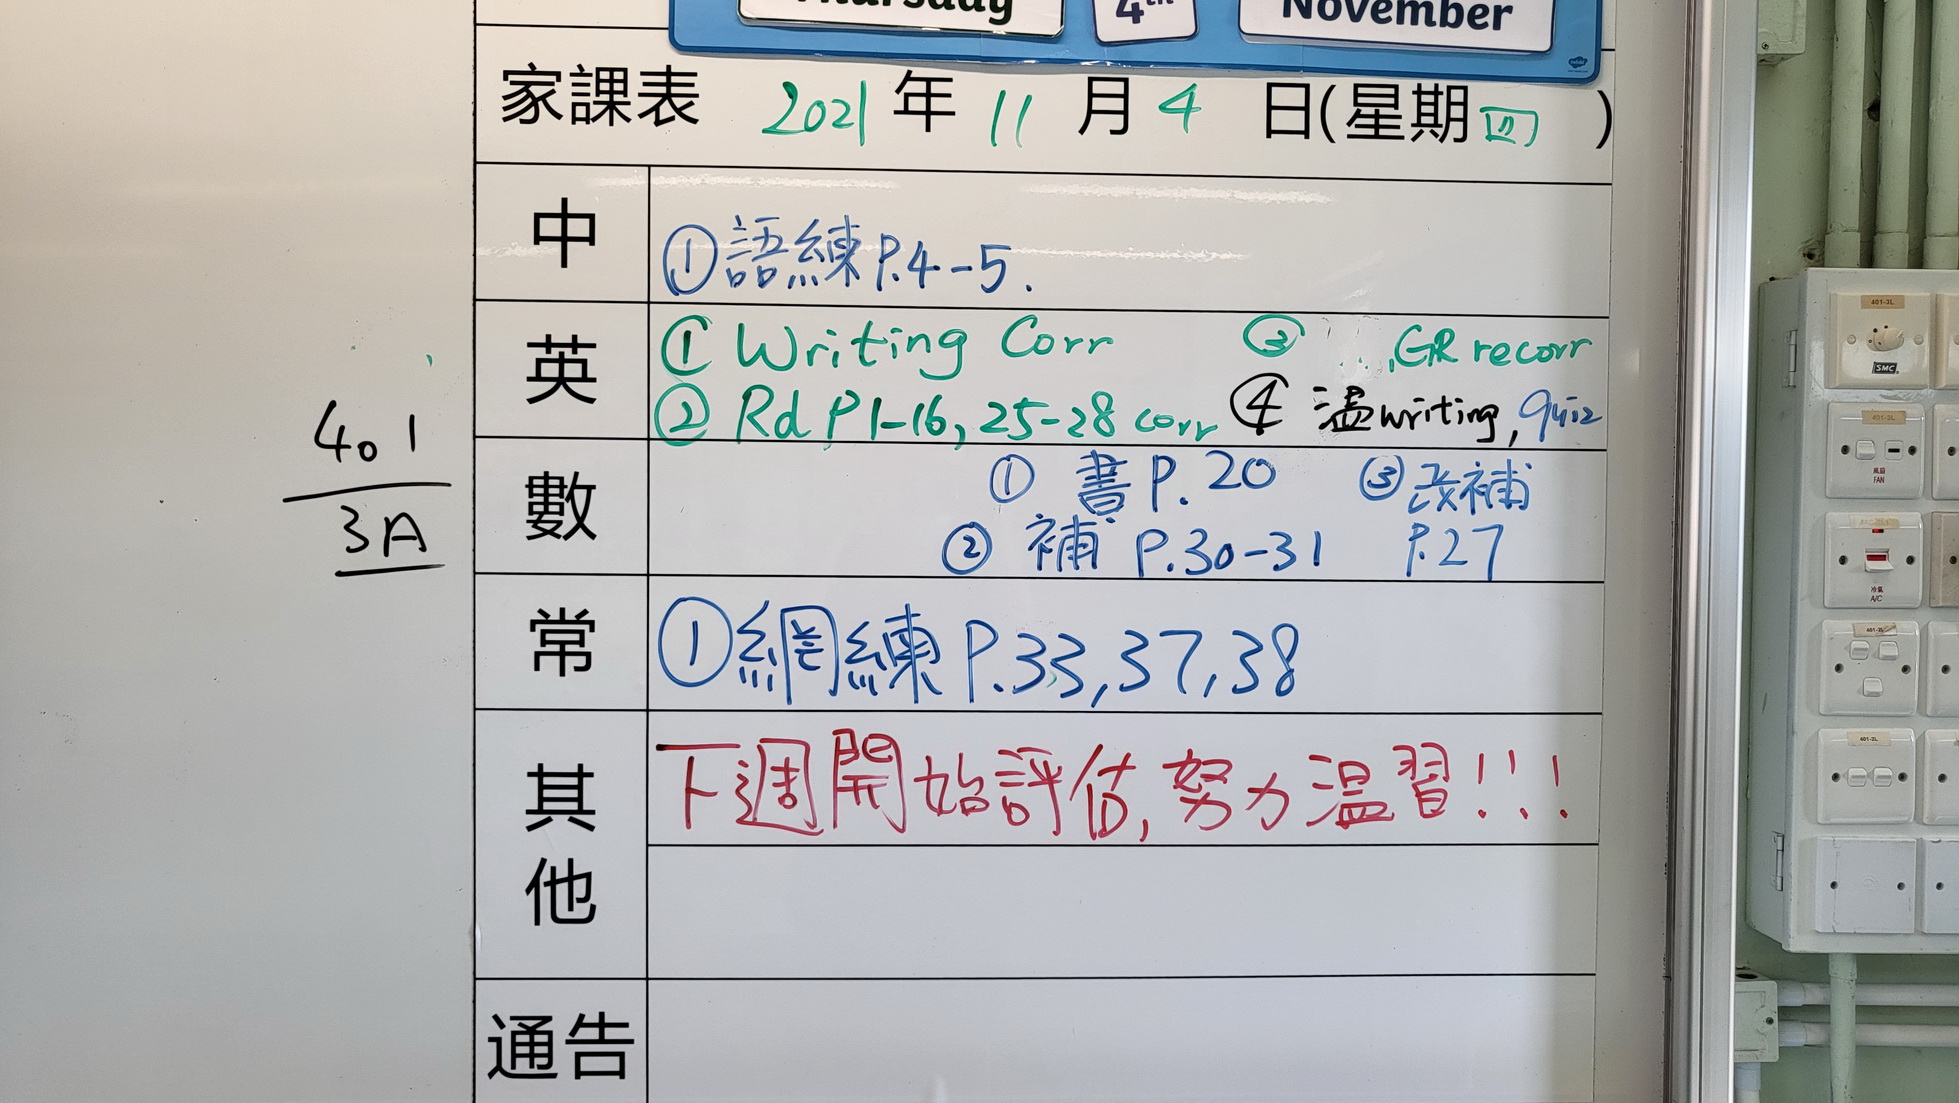 Thursday 4th November
家課表 2021 年 11 月 4 日(星期四)
中
①語練P.4-5.
英
① Writing Corr ③ GR recorr
② Rd P1-16, 25-28 corr ④ 温writing, quiz
數
① 書 P. 20 ③改補
② 補 P.30-31 P.27
常
①網練 P.33,37,38
其他
下週開始評估, 努力温習!!!
通告
401
3A
401-3L
SMC
401-3L
風扇
FAN
冷氣
A/C
401-2L
401-2L